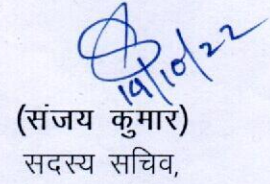 19/10/22
(संजय कुमार)
सदस्य सचिव,